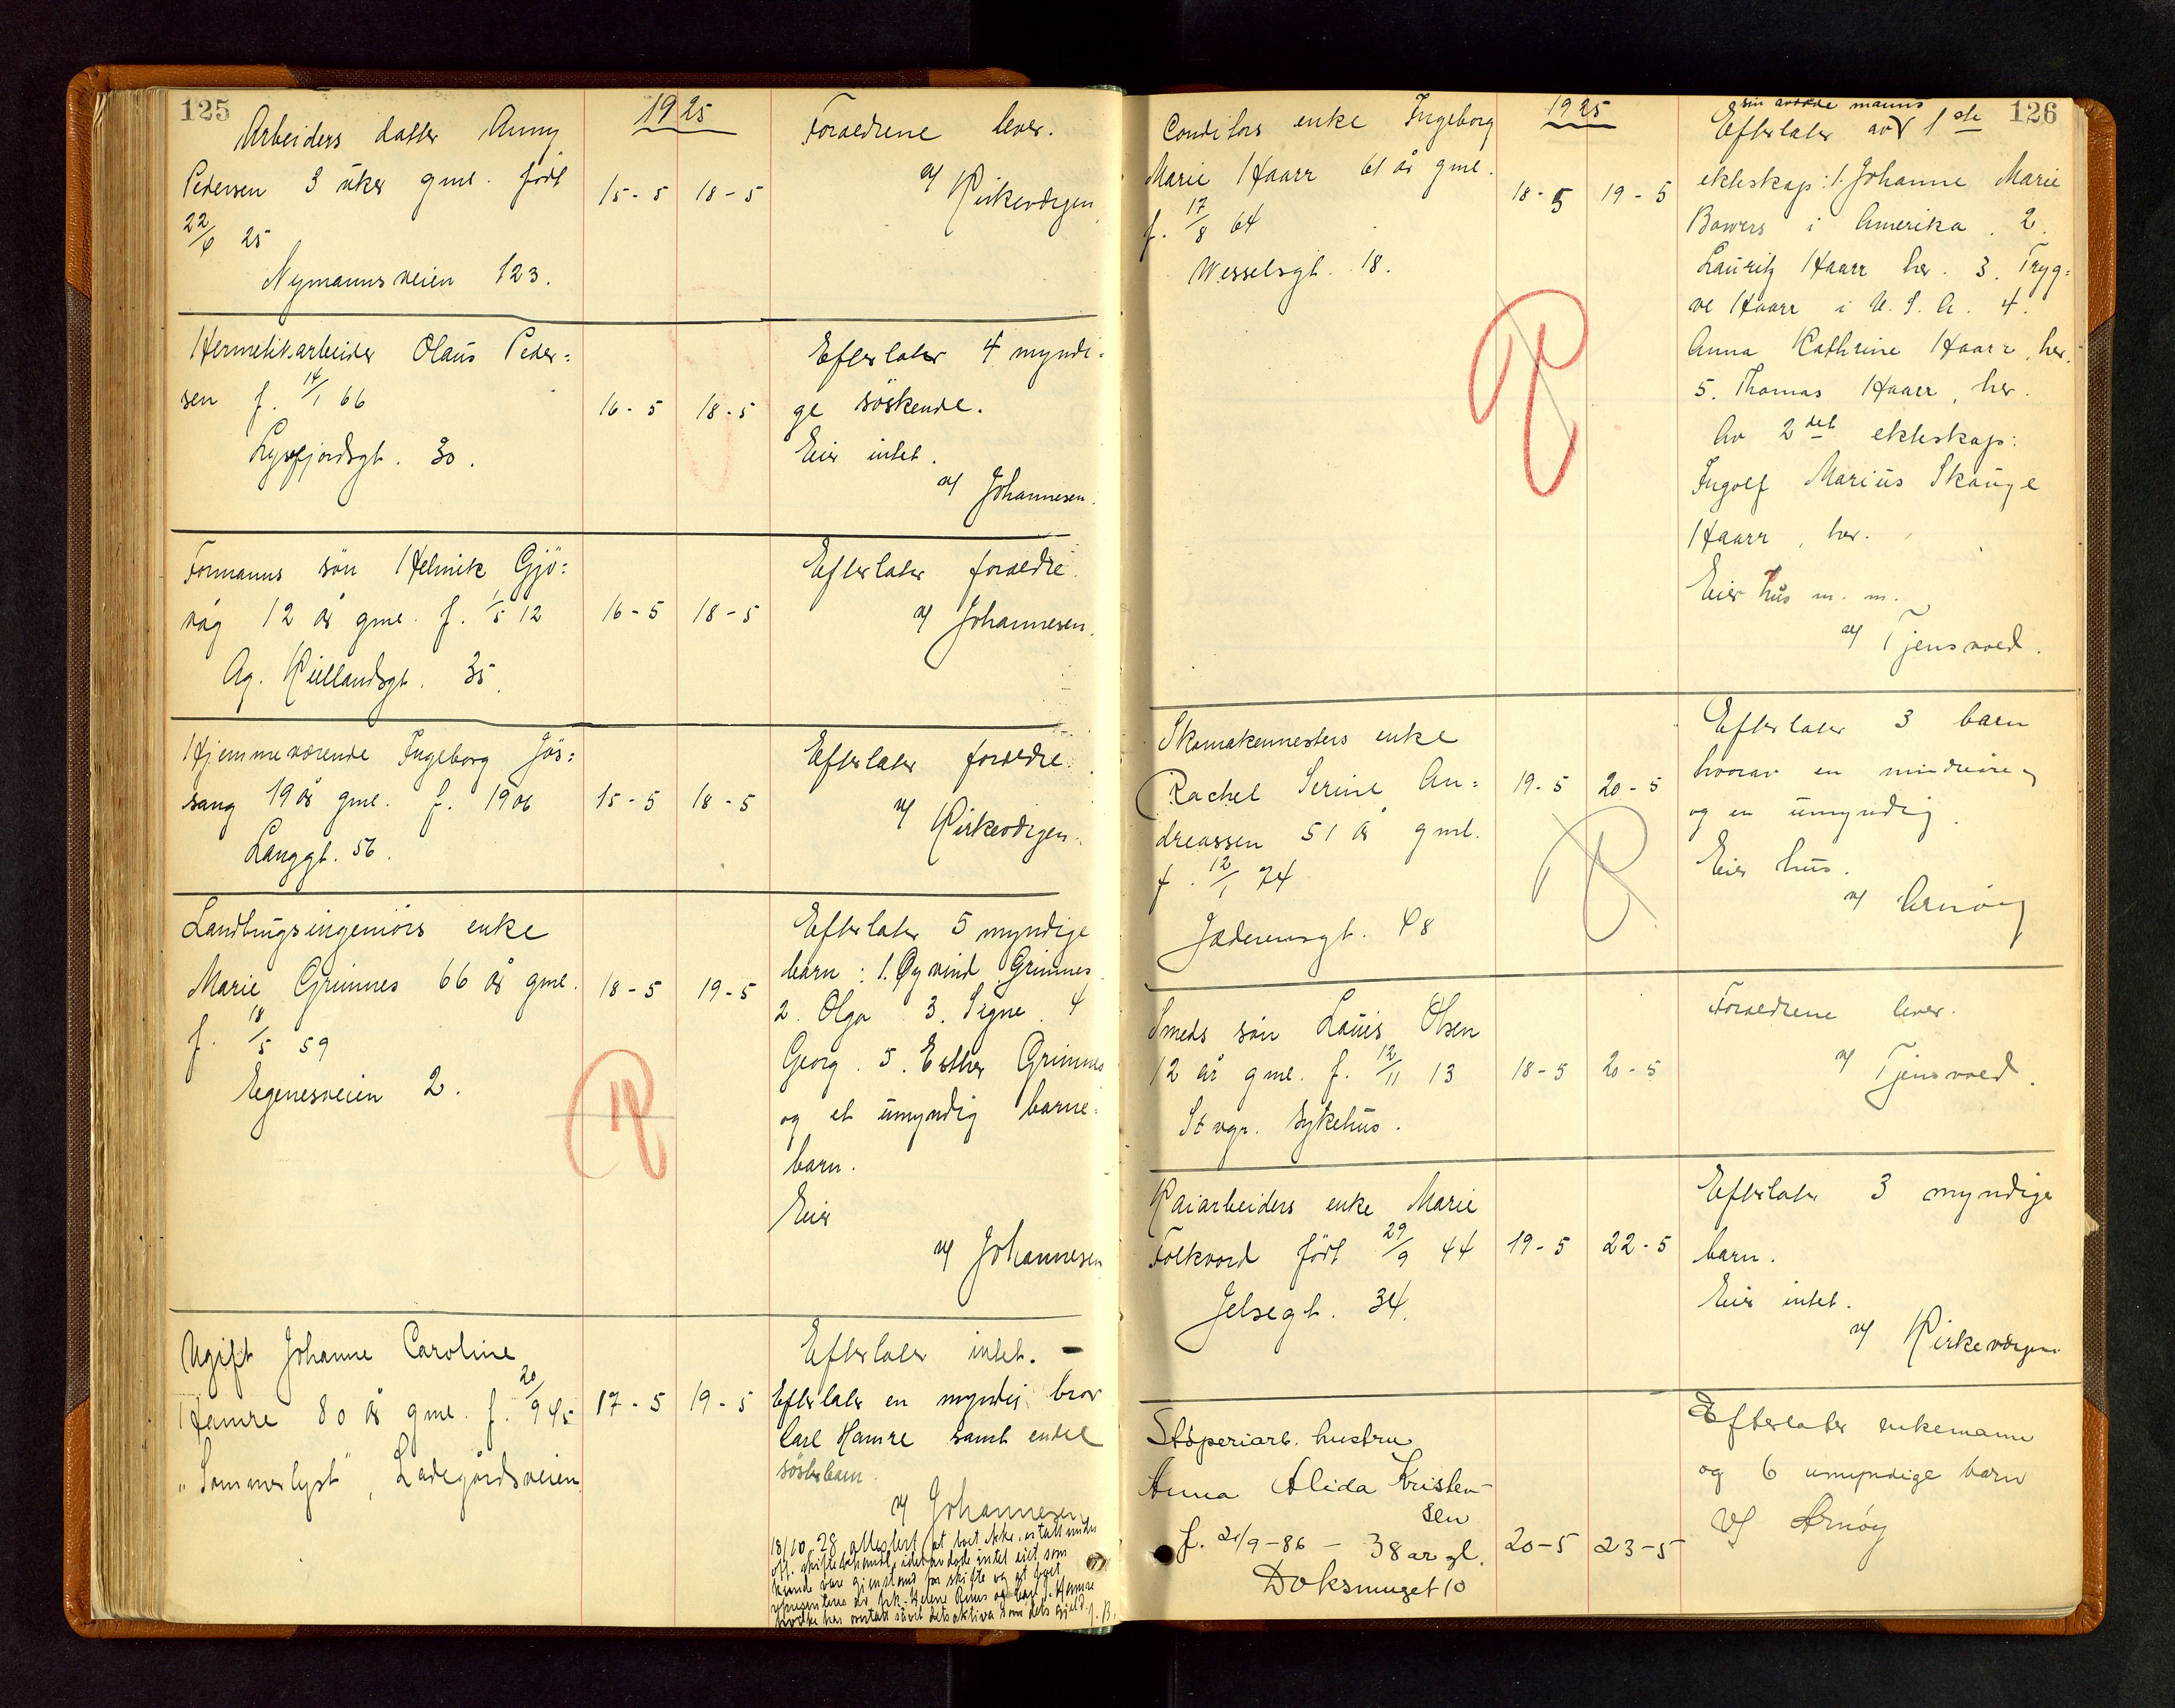 125
1925
Arbeiders datter Anny
Pedersen 3 uker gml. født
22/4 25
Nymannsveien 123.
15-5 18-5
Foraeldrene lever.
v/ Kirkevergen
Hermetikarbeider Olaus Peder=
sen f. 14/1 66
Lysefjordsgt. 30.
16-5 18-5
Efterlater 4 myndi=
ge søskende.
Eier intet.
v/ Johannesen.
Formanns søn Helmik Gjö=
våg 12 år gml. f. 1/5 12
Ag. Kiellandsgt. 35.
16-5 18-5
Efterlater foraeldre.
v/ Johannesen.
Hjemmeværende Ingeborg Jös=
sang 19 år gml. f. 1906
Langgt. 56.
15-5 18-5
Efterlater foraeldre.
v/ Kirkevergen.
Landbrugsingeniörs enke
Marie Grimnes 66 år gml.
f. 18/5 59
Egenesveien 2.
18-5 19-5
Efterlater 5 myndige
barn: 1. Øyvind Grimnes
2. Olga 3. Signe. 4
Georg. 5. Esther Grimnes
og et umyndig barne=
barn.
Eier
v/ Johannesen
Ugift Johanne Caroline
Hamre 80 år gml. f. 20/9 45
"Sommerlyst", Ladegårdsveien
17-5 19-5
Efterlater intet. -
Efterlater en myndig bror
Carl Hamre samt endel
søsterbarn.
v/ Johannesen
18/10-28 attestert at boet ikke er tatt under
off. skiftebehandl. idet avdøde intet eiet som
kunde være gjenstand for skifte og at boet
representeres av frk. Helene Reins og Carl J. Hamre
hvilke har overtatt såvel dets aktiva som dets gjeld. J.B.
126
1925
Conditors enke Ingeborg
Marie Haarr 61 år gml.
f. 17/8 64
Wesselsgt. 18.
18-5 19-5
sin avdøde manns
Efterlater av 1ste
ekteskap: 1. Johanne Marie
Bowers i Amerika. 2.
Lauritz Haarr her. 3. Tryg=
ve Haarr i U.S.A. 4.
Anna Kathrine Haarr, her.
5. Thomas Haarr, her.
Av 2det ekteskap:
Ingolf Marius Skauge
Haarr, her.
Eier hus m. m.
v/ Tjensvold.
Skomakermesters enke
Rachel Serine An=
dreassen 51 år gml.
f. 12/1 74
Jæderensgt. 48
19-5 20-5
Efterlater 3 barn
hvorav en mindreårig
og en umyndig.
Eier hus.
v/ Arnøy
Smeds søn Lauis Olsen
12 år gml. f. 12/11 13
Stvgr. sykehus.
18-5 20-5
Foraeldrene lever.
v/ Tjensvold.
Kaiarbeiders enke Marie
Folkvord født 29/9 44
Jelsegt. 34.
19-5 22-5
Efterlater 3 myndige
barn.
Eier intet.
v/ Kirkevergen
Støperiarb. hustru
Anna Alida Kristen-
sen
f. 20/9-86 - 38 år gl.
Doksmuget 10
20-5 23-5
Efterlater enkemann
og 6 umyndige barn
v/ Arnøy